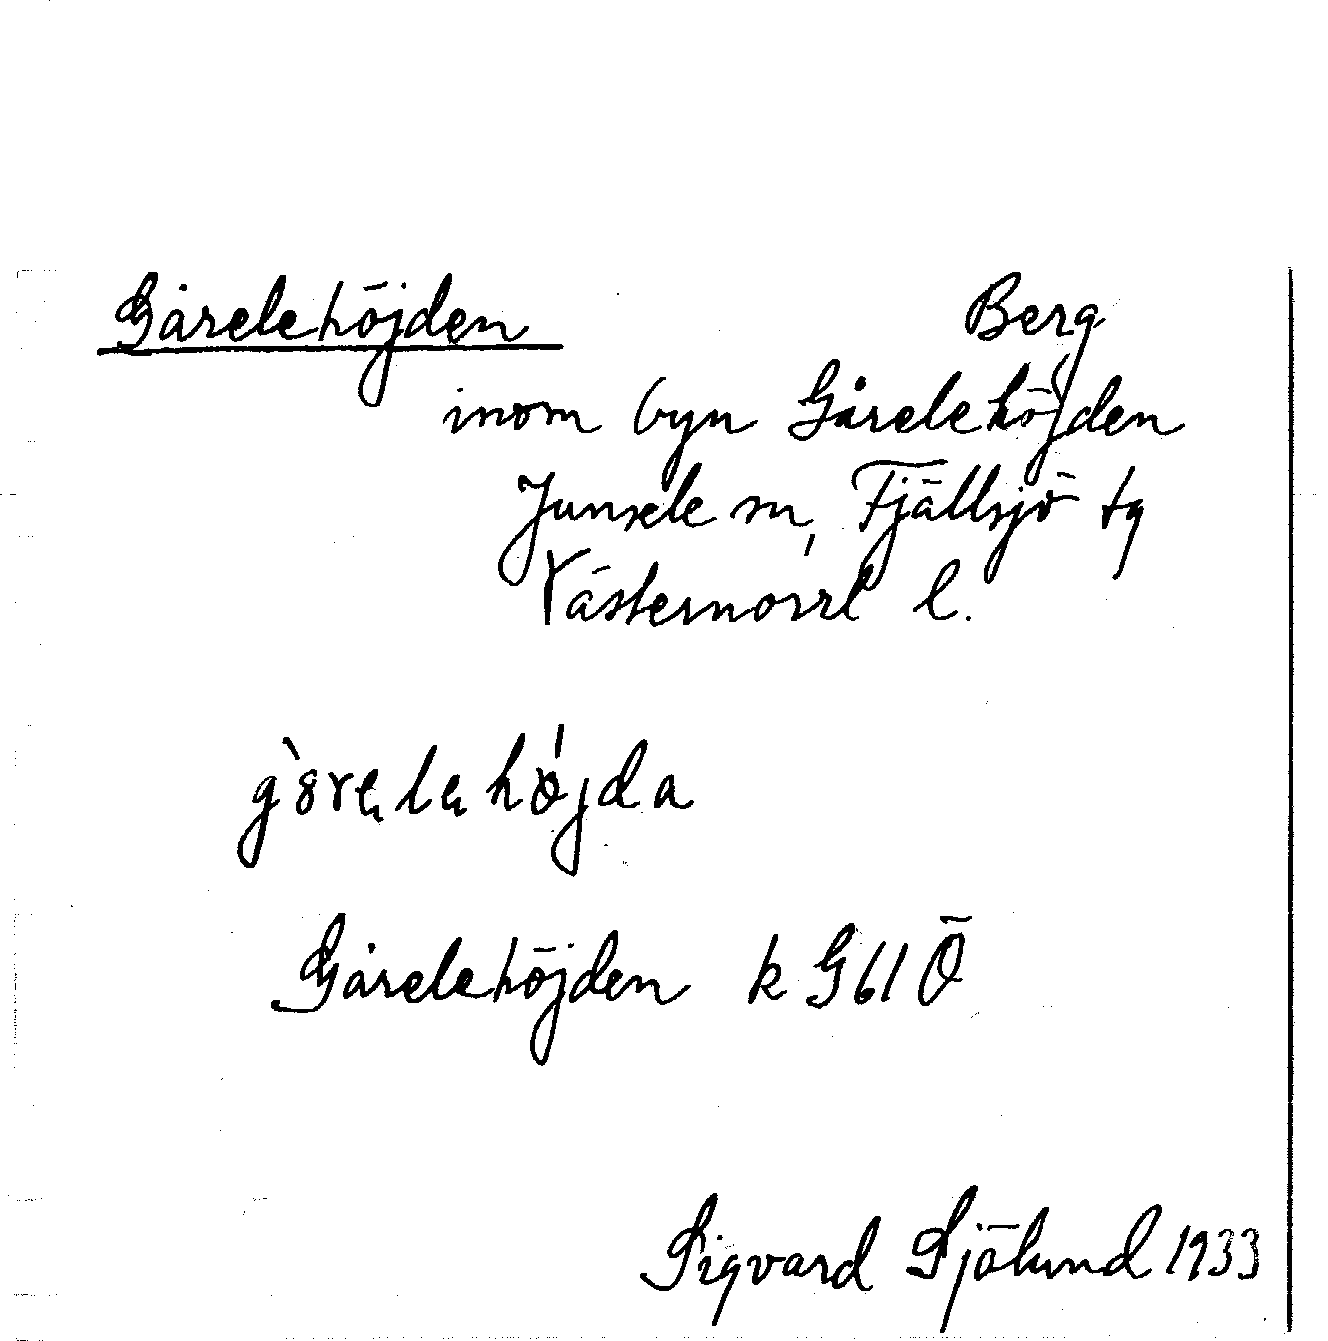 Gårelehöjden Berg
inom byn Gårelehöjden
Junsele sn, Fjällsjö tg
Västernorrl l.
gàrelehöjda
Gårelehöjden k G61 Ö
Sigvard Sjölund 1933